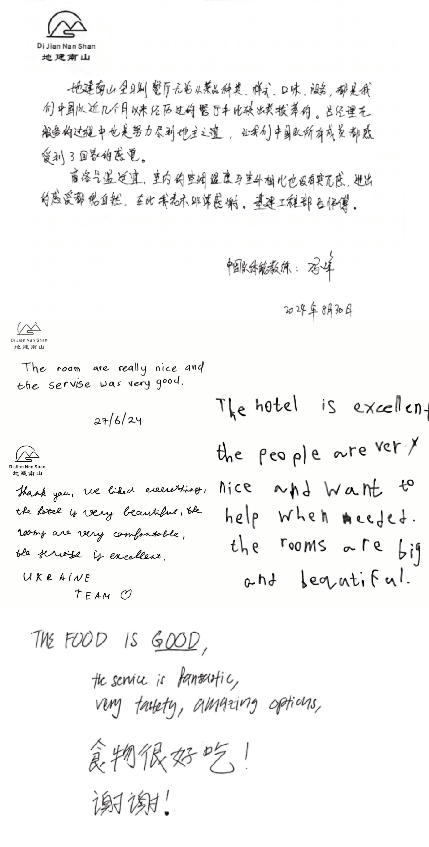 Di Jian Nan Shan
地建南山
地建南山全日制餐厅无论从菜品种类、样式、口味、服务，都是我
们中国队近几个月以来经历过的餐厅中比较出类拔萃的。
服务的过程中也是努力尽到地主之谊，让我们中国队所有成员都感
受到了回家的感觉。
室内的空调温度与室外相比也没有突兀感，进出
的感受都很自然，在此我表示非常感谢。
中国队体能教练：
2024年8月30日
Di Jian Nan Shan
地建南山
The room are really nice and
the servise was very good.
27/6/24
The hotel is excellent
the people are very
nice and want to
help when needed.
the rooms are big
and beautiful.
Di Jian Nan Shan
地建南山
Thank you, we liked everything,
the hotel is very beautiful, the
rooms are very comfortable,
the servise is excellent.
UKRAINE
TEAM ♡
THE FOOD IS GOOD,
the service is fantastic,
very tastety, amazing options,
食物很好吃！
谢谢！